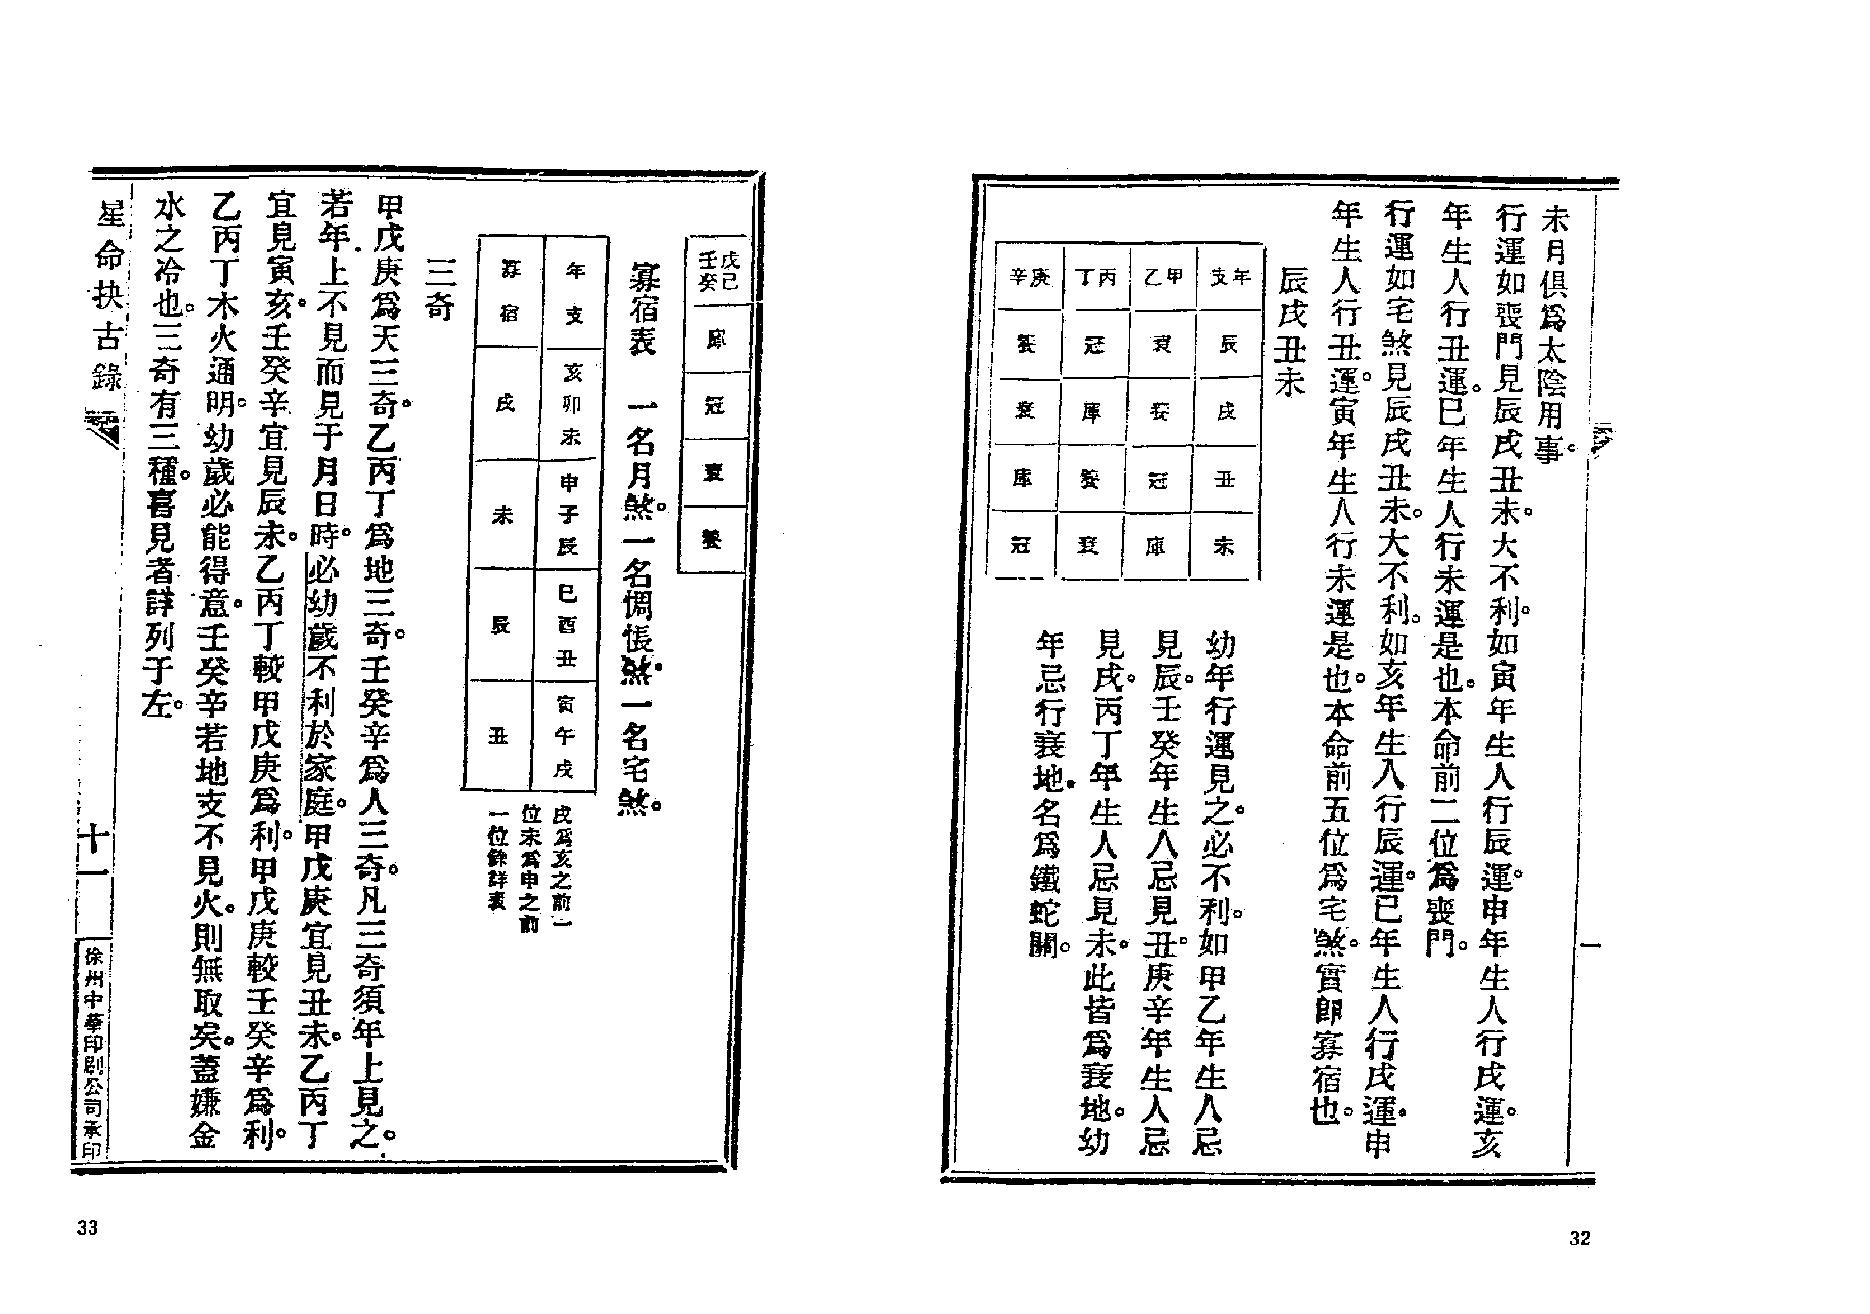 未月俱爲太陰用事。
行運如喪門見辰戌丑未。大不利。如寅年生人行辰運。申年生人行戌運。亥
年生人行丑運。巳年生人行未運是也。本命前二位爲喪門。
行運如宅煞見辰戌丑未。大不利。如亥年生人行辰運。巳年生人行戌運。申
年生人行丑運。寅年生人行未運是也。本命前五位爲宅煞。實卽寡宿也。
辰戌丑未
年支 辰 戌 丑 未
甲乙 衰 養 冠 庫
丙丁 冠 庫 養 衰
庚辛 養 衰 庫 冠
幼年行運見之。必不利。如甲乙年生人忌
見辰。壬癸年生人忌見丑。庚辛年生人忌
見戌。丙丁年生人忌見未。此皆爲衰地。幼
年忌行衰地。名爲鐵蛇關。
一
32
戊己壬癸 庫 冠 衰 養
寡宿表 一名月煞。一名惆悵煞。一名宅煞。
年支 亥卯未 申子辰 巳酉丑 寅午戌
寡宿 戌 未 辰 丑
戌爲亥之前一
位未爲申之前
一位餘詳表
三奇
甲戊庚爲天三奇。乙丙丁爲地三奇。壬癸辛爲人三奇。凡三奇須年上見之。
若年上不見而見于月日時。必幼歲不利於家庭。甲戊庚宜見丑未。乙丙丁
宜見寅亥。壬癸辛宜見辰未。乙丙丁較甲戊庚爲利。甲戊庚較壬癸辛爲利。
乙丙丁木火通明。幼歲必能得意。壬癸辛若地支不見火。則無取矣。蓋嫌金
水之冷也。三奇有三種。喜見者詳列于左。
星命抉古錄
十一
徐州中華印刷公司承印
33